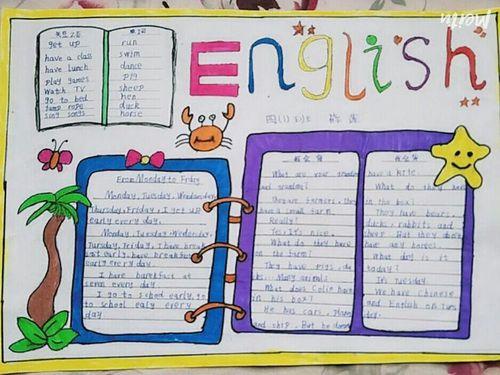 English
get up
have a class
have lunch
play games
watch TV
go to bed
jump rope
sing songs
run
swim
dance
pig
sheep
hen
duck
horse
From Monday to Friday
Monday, Tuesday, Wednesday
Thursday, Friday, I get up
early every day.
Monday, Tuesday, Wednesday,
Tuesday, Friday, I have break
fast early, have breakfast
early every day.
I have barekfast at
seven every day.
I go to school early, to
to school ealy every
day
What are your grandpa
and grandma?
They are farmers, they
have a small farm.
Really?
Yes. It's nice.
What do they have
on the farm?
They have pigs, du
cks. Many animals.
What does Colin have
in his box?
He has cars, planes
and ship. But he doesn't
have a kite.
What do they have
in the box?
They have bears,
ducks, rabbits and
But they don't
have any horses.
What day is it
today?
It's Tuesday.
We have Chinese
and English on Tues
day.